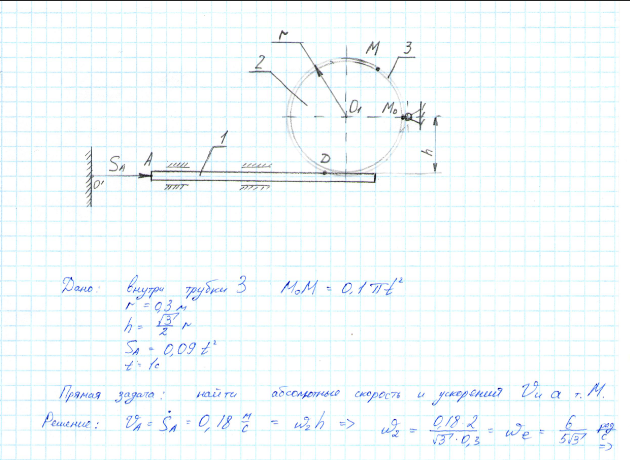 r
M
3
2
O₁
M₀
h
1
S_A
A
D
O'
Дано: внутри трубки 3 M₀M = 0,1πt²
r = 0,3 м
h = √3/2 r
S_A = 0,09 t²
t = 1с
Прямая задача: найти абсолютные скорость и ускорения V и a т. M.
Решение: V_A = Ṡ_A = 0,18 м/с = ω₂h => ω₂ = 0,18·2/√3·0,3 = ω_e = 6/5√3 рад/с =>